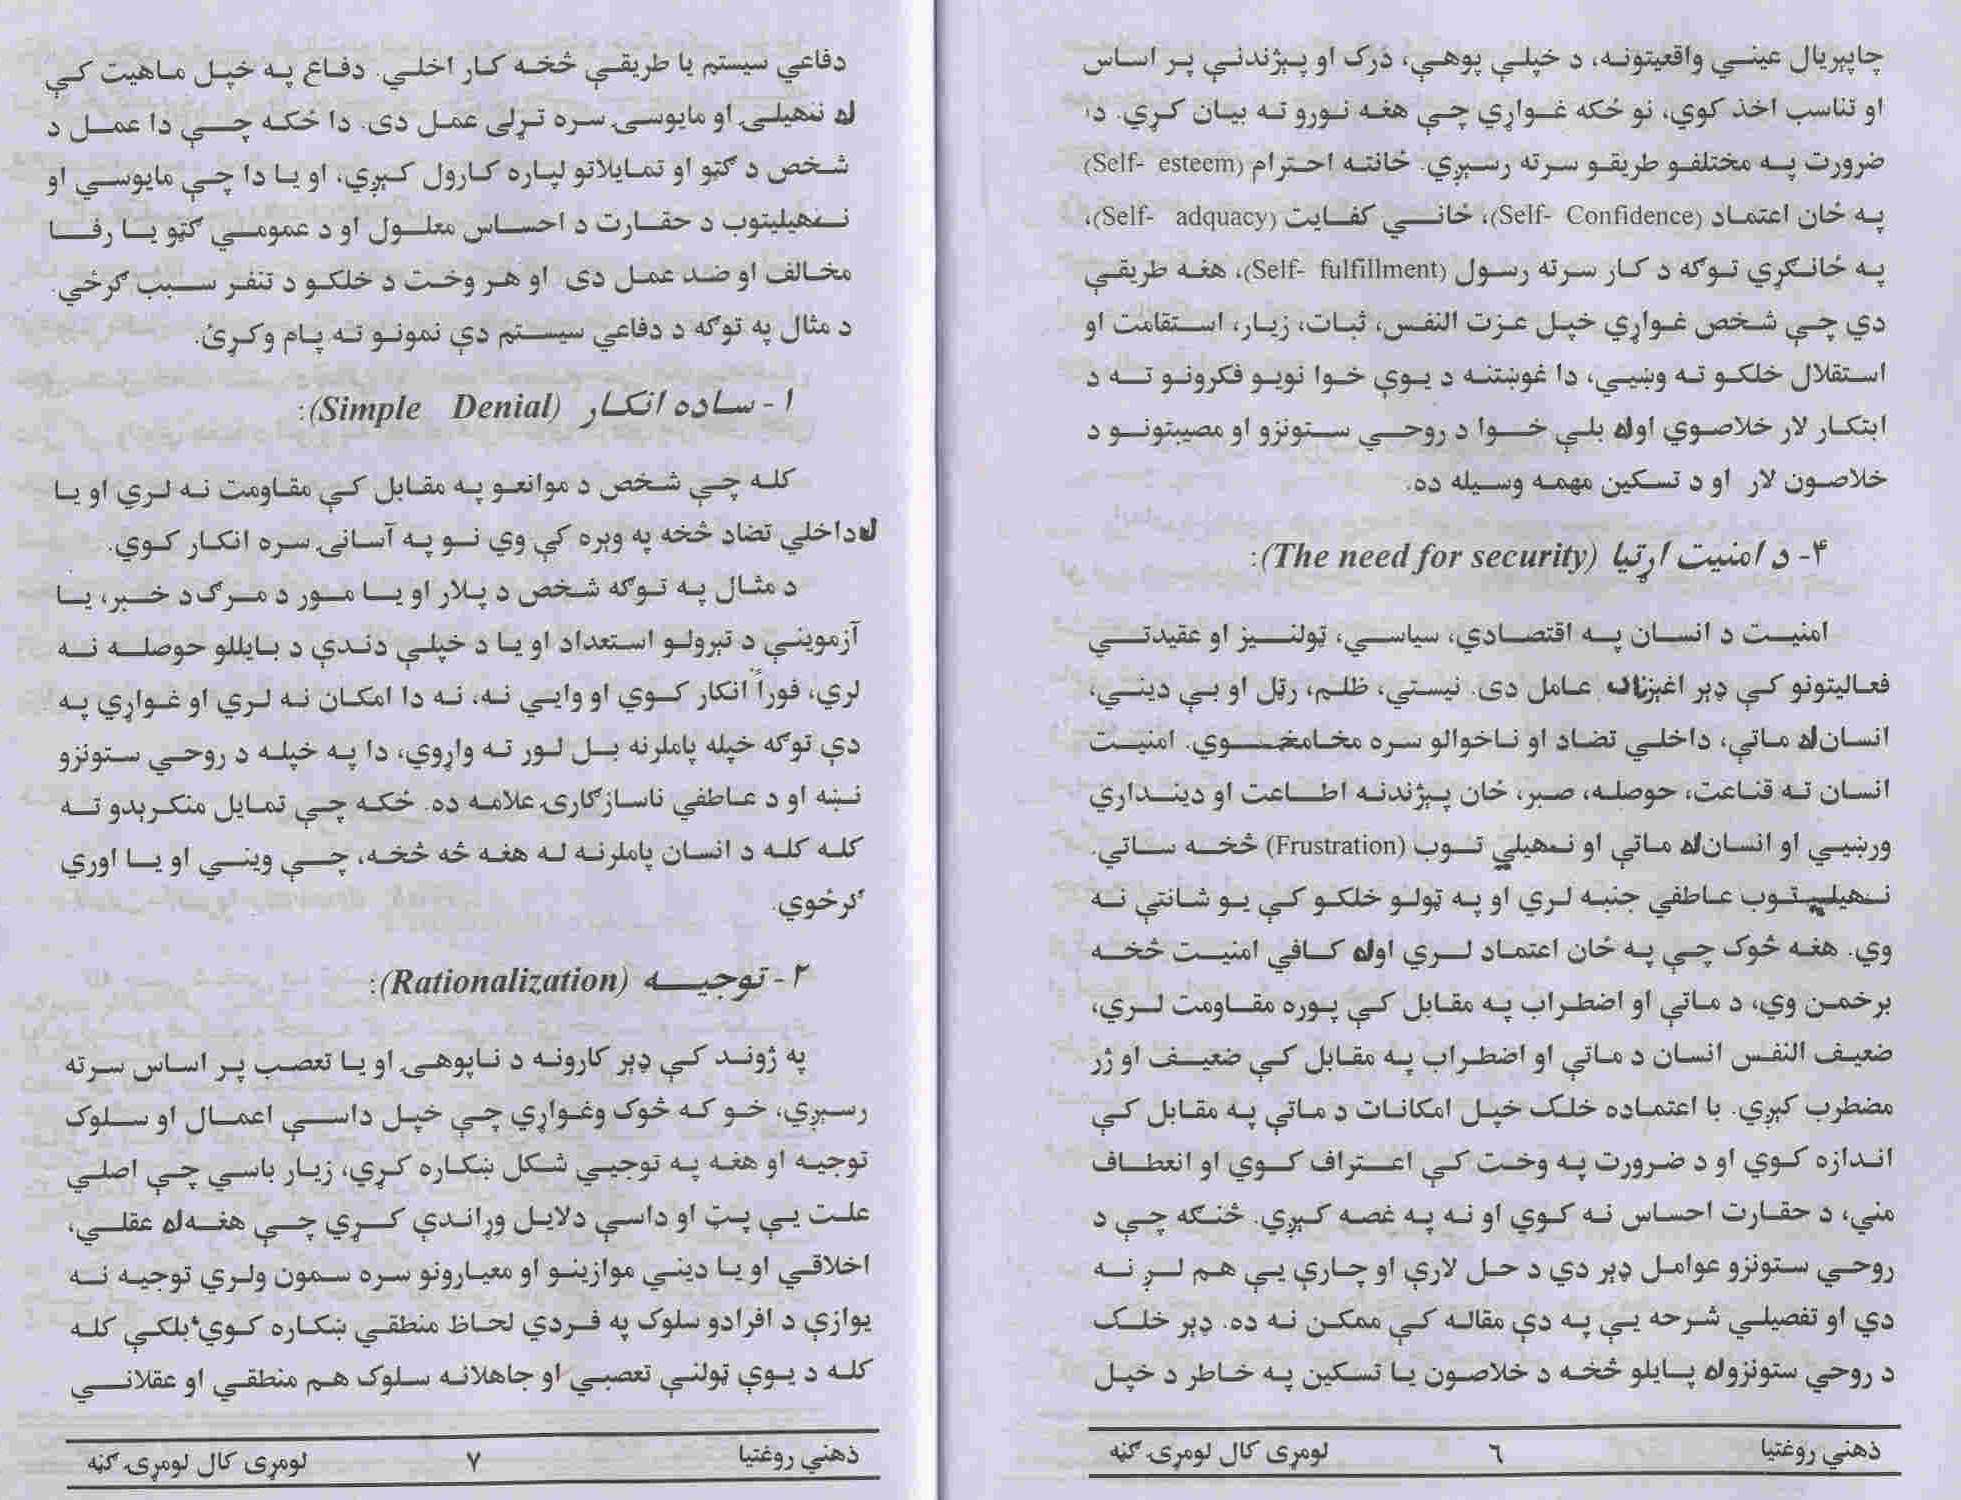 چاپېريال عيني واقعيتونه، د خپلې پوهې، درک او پېژندنې پر اساس
او تناسب اخذ کوي، نو ځکه غواړي چې هغه نورو ته بيان کړي. دا
ضرورت په مختلفو طريقو سرته رسېږي. ځانته احترام (Self- esteem)
په ځان اعتماد (Self- Confidence)، ځاني کفايت (Self- adquacy)،
په ځانګړي توګه د کار سرته رسول (Self- fulfillment)، هغه طريقې
دي چې شخص غواړي خپل عزت النفس، ثبات، زيار، استقامت او
استقلال خلکو ته وښيي، دا غوښتنه د يوې خوا نويو فکرونو ته د
ابتکار لار خلاصوي اوله بلې خوا د روحي ستونزو او مصيبتونو د
خلاصون لار او د تسکين مهمه وسيله ده.
۴- د امنيت اړتيا (The need for security):
امنيت د انسان په اقتصادي، سياسي، ټولنيز او عقيدتي
فعاليتونو کې ډېر اغېزناک عامل دی. نيستي، ظلم، رټل او بې ديني،
انسان له ماتې، داخلي تضاد او ناخوالو سره مخامخوي. امنيت
انسان ته قناعت، حوصله، صبر، ځان پېژندنه اطاعت او دينداري
ورښيي او انسان له ماتې او نهيلي توب (Frustration) څخه ساتي.
نهيليتوب عاطفي جنبه لري او په ټولو خلکو کې يو شانتې نه
وي. هغه څوک چې په ځان اعتماد لري اوله کافي امنيت څخه
برخمن وي، د ماتې او اضطراب په مقابل کې پوره مقاومت لري،
ضعيف النفس انسان د ماتې او اضطراب په مقابل کې ضعيف او ژر
مضطرب کېږي. با اعتماده خلک خپل امکانات د ماتې په مقابل کې
اندازه کوي او د ضرورت په وخت کې اعتراف کوي او انعطاف
مني، د حقارت احساس نه کوي او نه په غصه کېږي. څنګه چې د
روحي ستونزو عوامل ډېر دي د حل لارې او چارې يې هم لږ نه
دي او تفصيلي شرحه يې په دې مقاله کې ممکن نه ده. ډېر خلک
د روحي ستونزوله پايلو څخه د خلاصون يا تسکين په خاطر د خپل
ذهني روغتيا ٦ لومړی کال لومړۍ ګڼه
دفاعي سيستم يا طريقې څخه کار اخلي. دفاع په خپل ماهيت کې
له ننهيلۍ او مايوسۍ سره تړلی عمل دی. دا ځکه چې دا عمل د
شخص د ګټو او تمايلاتو لپاره کارول کېږي، او يا دا چې مايوسي او
ننهيليتوب د حقارت د احساس معلول او د عمومي ګټو يا رفا
مخالف او ضد عمل دی او هر وخت د خلکو د تنفر سبب ګرځي.
د مثال په توګه د دفاعي سيستم دې نمونو ته پام وکړئ.
۱- ساده انکار (Simple Denial):
کله چې شخص د موانعو په مقابل کې مقاومت نه لري او يا
له داخلي تضاد څخه په وېره کې وي نو په آسانۍ سره انکار کوي.
د مثال په توګه شخص د پلار او يا مور د مرګ د خبر، يا
آزموينې د تېرولو استعداد او يا د خپلې دندې د بايللو حوصله نه
لري، فوراً انکار کوي او وايي نه، نه دا امکان نه لري او غواړي په
دې توګه خپله پاملرنه بل لور ته واړوي، دا په خپله د روحي ستونزو
نښه او د عاطفي ناسازګارۍ علامه ده. ځکه چې تمايل منکرېدو ته
کله کله د انسان پاملرنه له هغه څه څخه، چې ويني او يا اوري
ګرځوي.
۲- توجيه (Rationalization):
په ژوند کې ډېر کارونه د ناپوهۍ او يا تعصب پر اساس سرته
رسېږي، خو که څوک وغواړي چې خپل داسې اعمال او سلوک
توجيه او هغه په توجيي شکل ښکاره کړي، زيار باسي چې اصلي
علت يې پټ او داسې دلايل وړاندې کړي چې هغه له عقلي،
اخلاقي او يا ديني موازينو او معيارونو سره سمون ولري توجيه نه
يوازې د افرادو سلوک په فردي لحاظ منطقي ښکاره کوي بلکې کله
کله د يوې ټولنې تعصبي او جاهلانه سلوک هم منطقي او عقلاني
ذهني روغتيا ۷ لومړی کال لومړۍ ګڼه